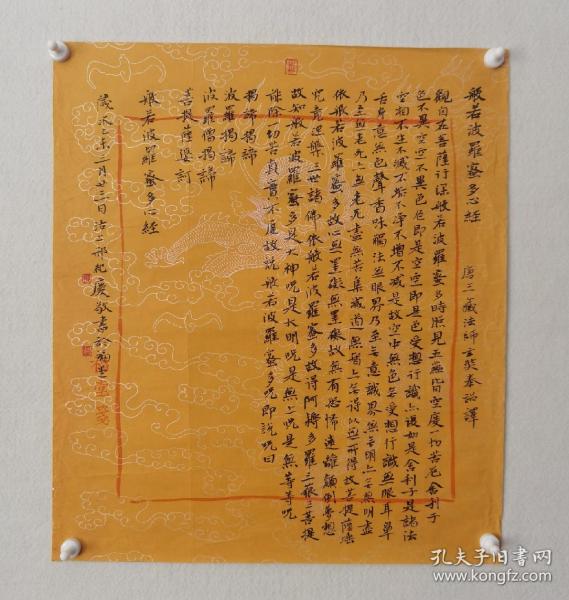 般若波羅蜜多心經
唐三藏法師玄奘奉詔譯
觀自在菩薩行深般若波羅蜜多時照見五蘊皆空度一切苦厄舍利子
色不異空空不異色色即是空空即是色受想行識亦復如是舍利子是諸法
空相不生不滅不垢不淨不增不減是故空中無色無受想行識無眼耳鼻
舌身意無色聲香味觸法無眼界乃至無意識界無無明亦無無明盡
乃至無老死亦無老死盡無苦集滅道無智亦無得以無所得故菩提薩埵
依般若波羅蜜多故心無罣礙無罣礙故無有恐怖遠離顛倒夢想
究竟涅槃三世諸佛依般若波羅蜜多故得阿耨多羅三藐三菩提
故知般若波羅蜜多是大神咒是大明咒是無上咒是無等等咒
能除一切苦真實不虛故說般若波羅蜜多咒即說咒曰
揭諦揭諦
波羅揭諦
波羅僧揭諦
菩提薩婆訶
般若波羅蜜多心經
歲次乙未三月廿三日沽上邢 慶敬書於
孔夫子旧书网
www.kongfz.com